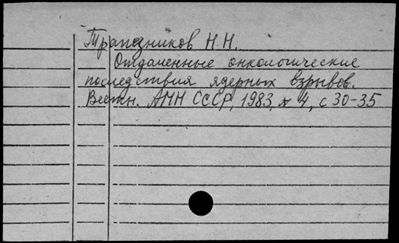 Трапезников Н.Н.
Отдаленные онкологические
последствия ядерных взрывов.
Вестн. АМН СССР, 1983, № 4, с 30-35